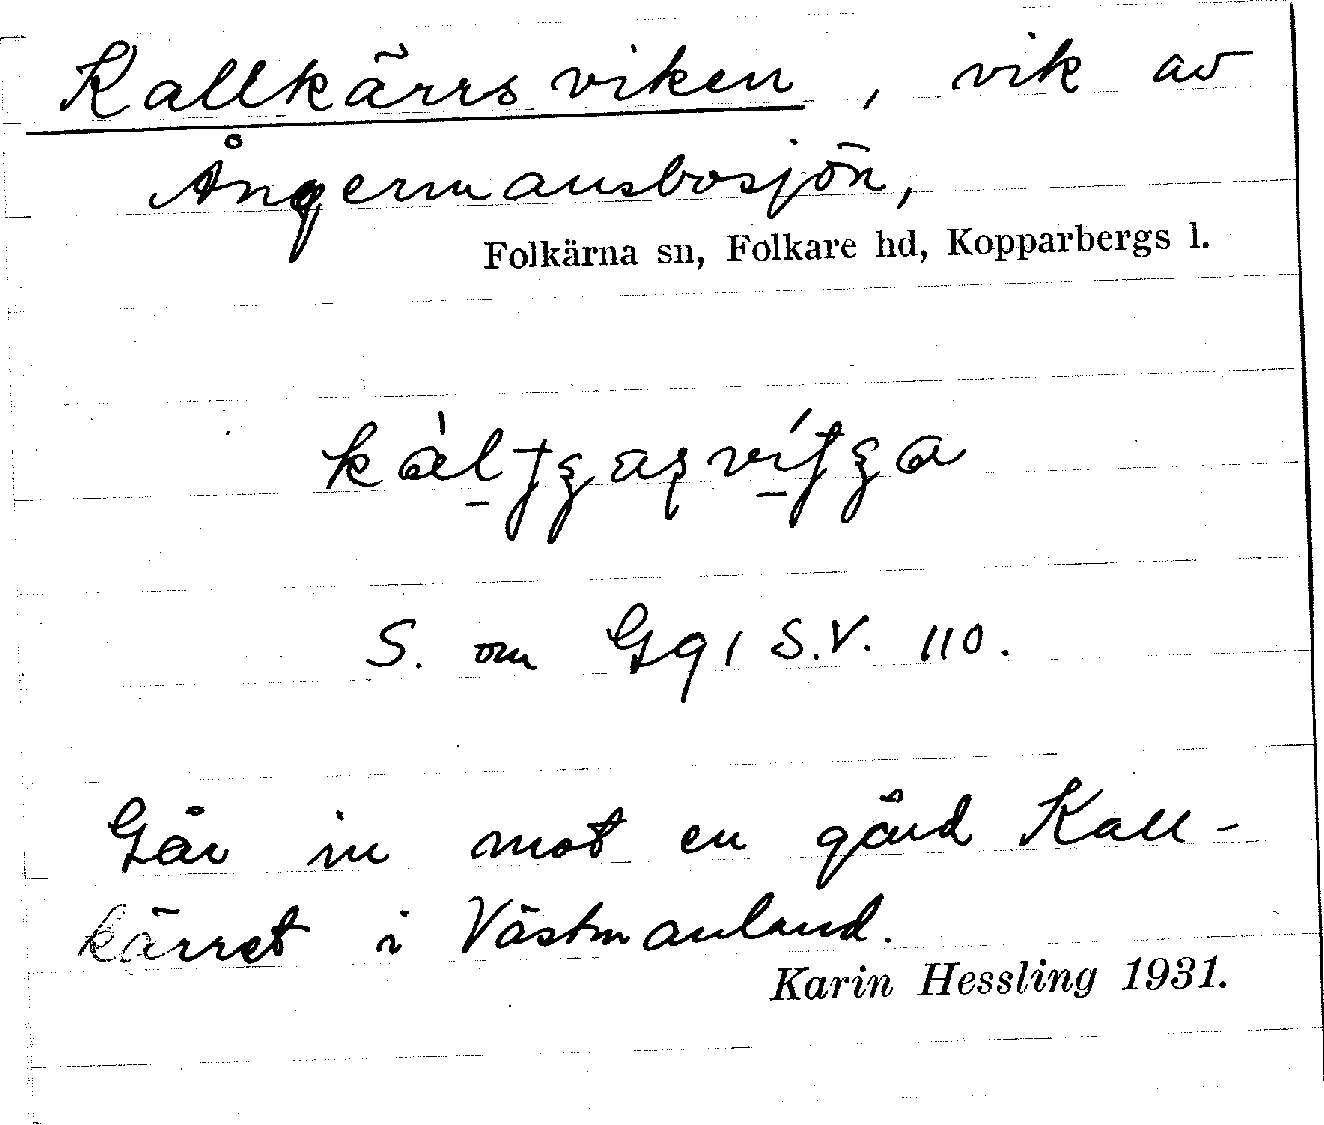 Kallkärrsviken, vik av
Ångermansbosjön,
Folkärna sn, Folkare hd, Kopparbergs l.
S. om Gq 1 S.V. 110.
Går in mot en gård Kall-
kärret i Västmanland.
Karin Hessling 1931.